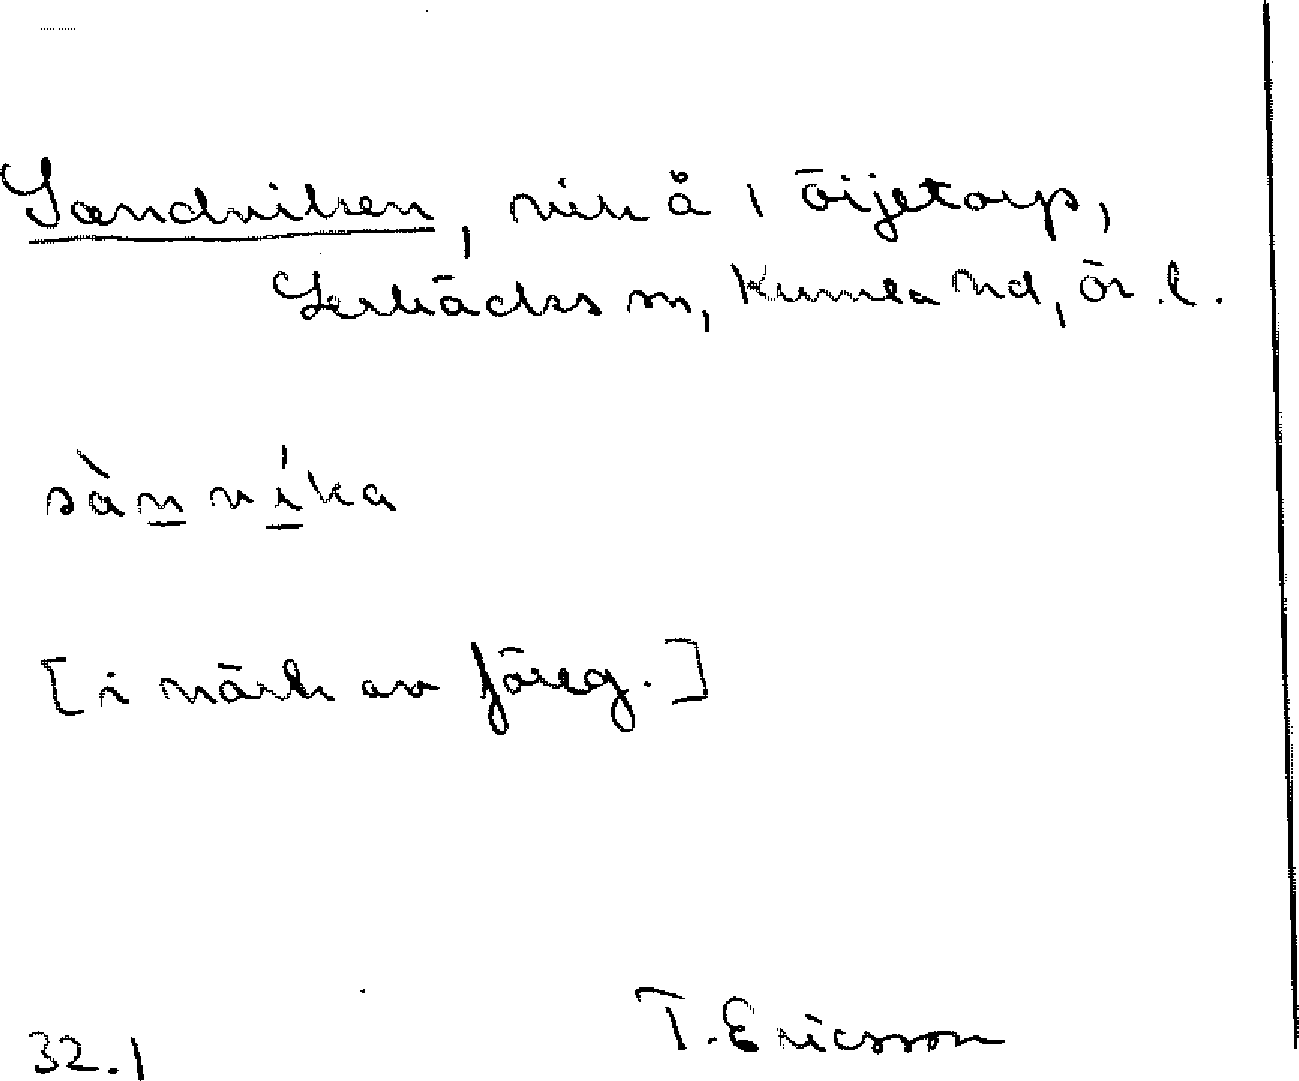 Sandviken, vik å 1 Öijetorp,
Lerbäcks sn, Kumla hd, Ör. l.
sànvíka
[i närh av föreg.]
32.1 T. Ericsson